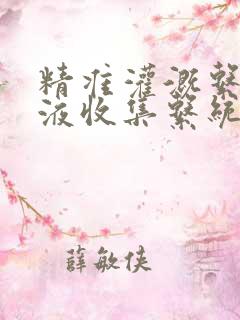 精准灌溉系
液收集系统
薛敏侠